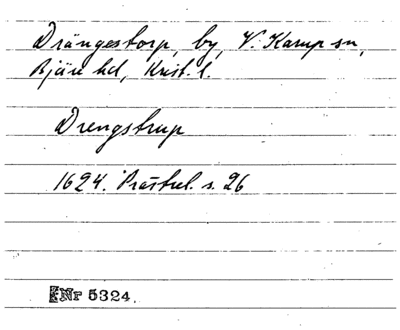 Drängestorp, by, V. Karup sn,
Bjäre hd, Krist. l.
Drengstrup
1624. Prästrel. s. 26
Nr 5324.